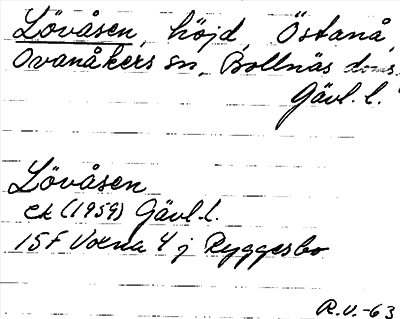 Lövåsen, höjd, Östanå,
Ovanåkers sn, Bollnäs doms.
Gävl. l.
Lövåsen
ek (1959) Gävl. l.
15F Voxna 4 j Ryggesbo
R.V.-63